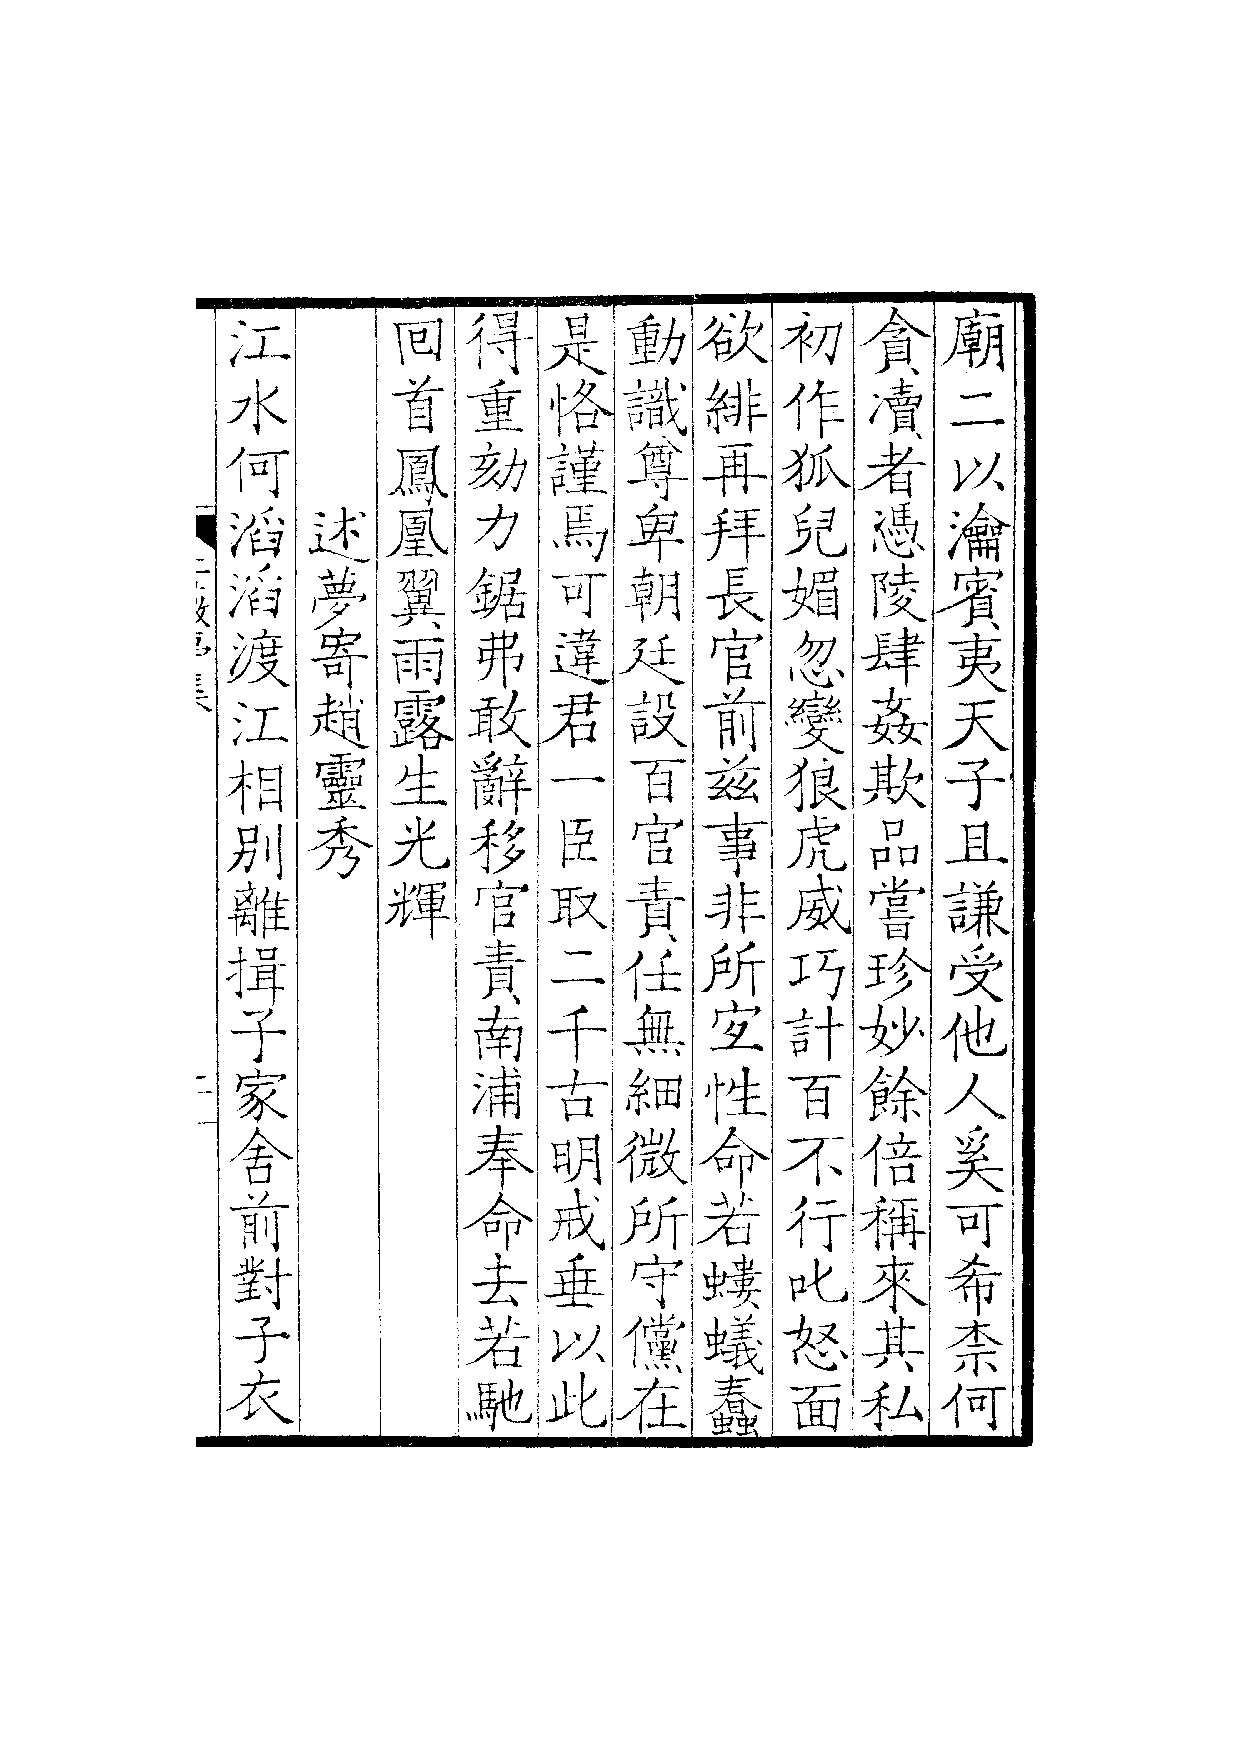 廟二以瀹賓夷天子且謙受他人奚可希柰何
貪瀆者憑陵肆姦欺品嘗珍妙餘倍稱來其私
初作狐兒媚忽變狼虎威巧計百不行叱怒面
欲緋再拜長官前兹事非所宐性命若螻蟻蠢
動識尊卑朝廷設百官責任無細微所守儻在
是恪謹焉可違君一臣取二千古明戒垂以此
得重劾力鋸弗敢辭移官責南浦奉命去若馳
回首鳳凰翼雨露生光輝
述夢寄趙靈秀
江水何滔滔渡江相別離揖子家舍前對子衣